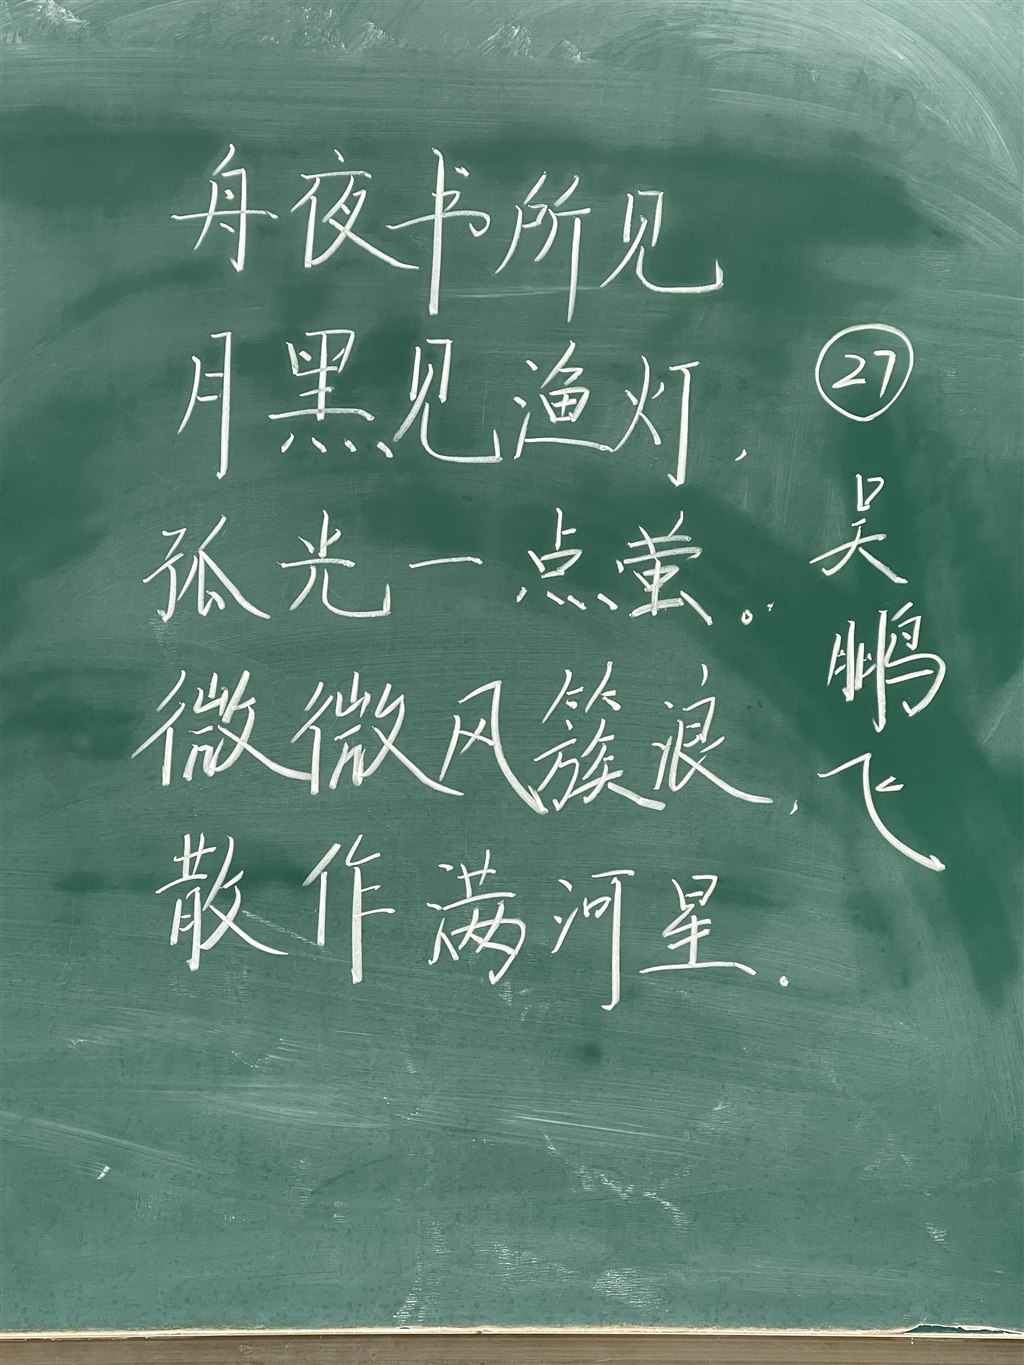 舟夜书所见
月黑见渔灯，
孤光一点萤。
微微风簇浪，
散作满河星。
27
吴鹏飞